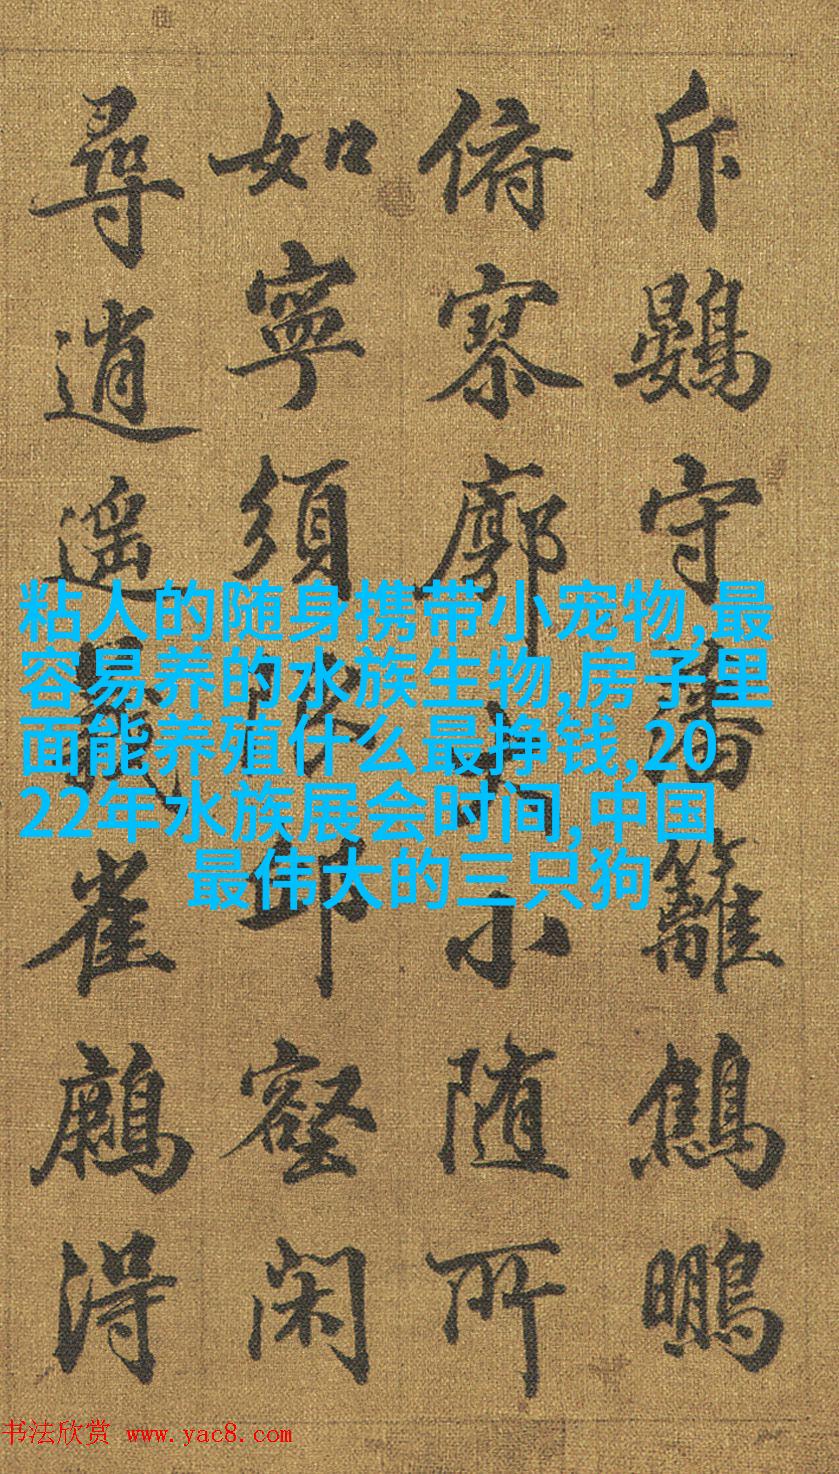 斥鷃守藩籬鷦鵬
俯寥廓小随所
如寧須邱壑闲
尋逍遥雀得
粘人的随身携带小宠物,最
容易养的水族生物,房子里
面能养殖什么最挣钱,20
22年水族展会时间,中国
最伟大的三只狗
书法欣赏 www.yac8.com